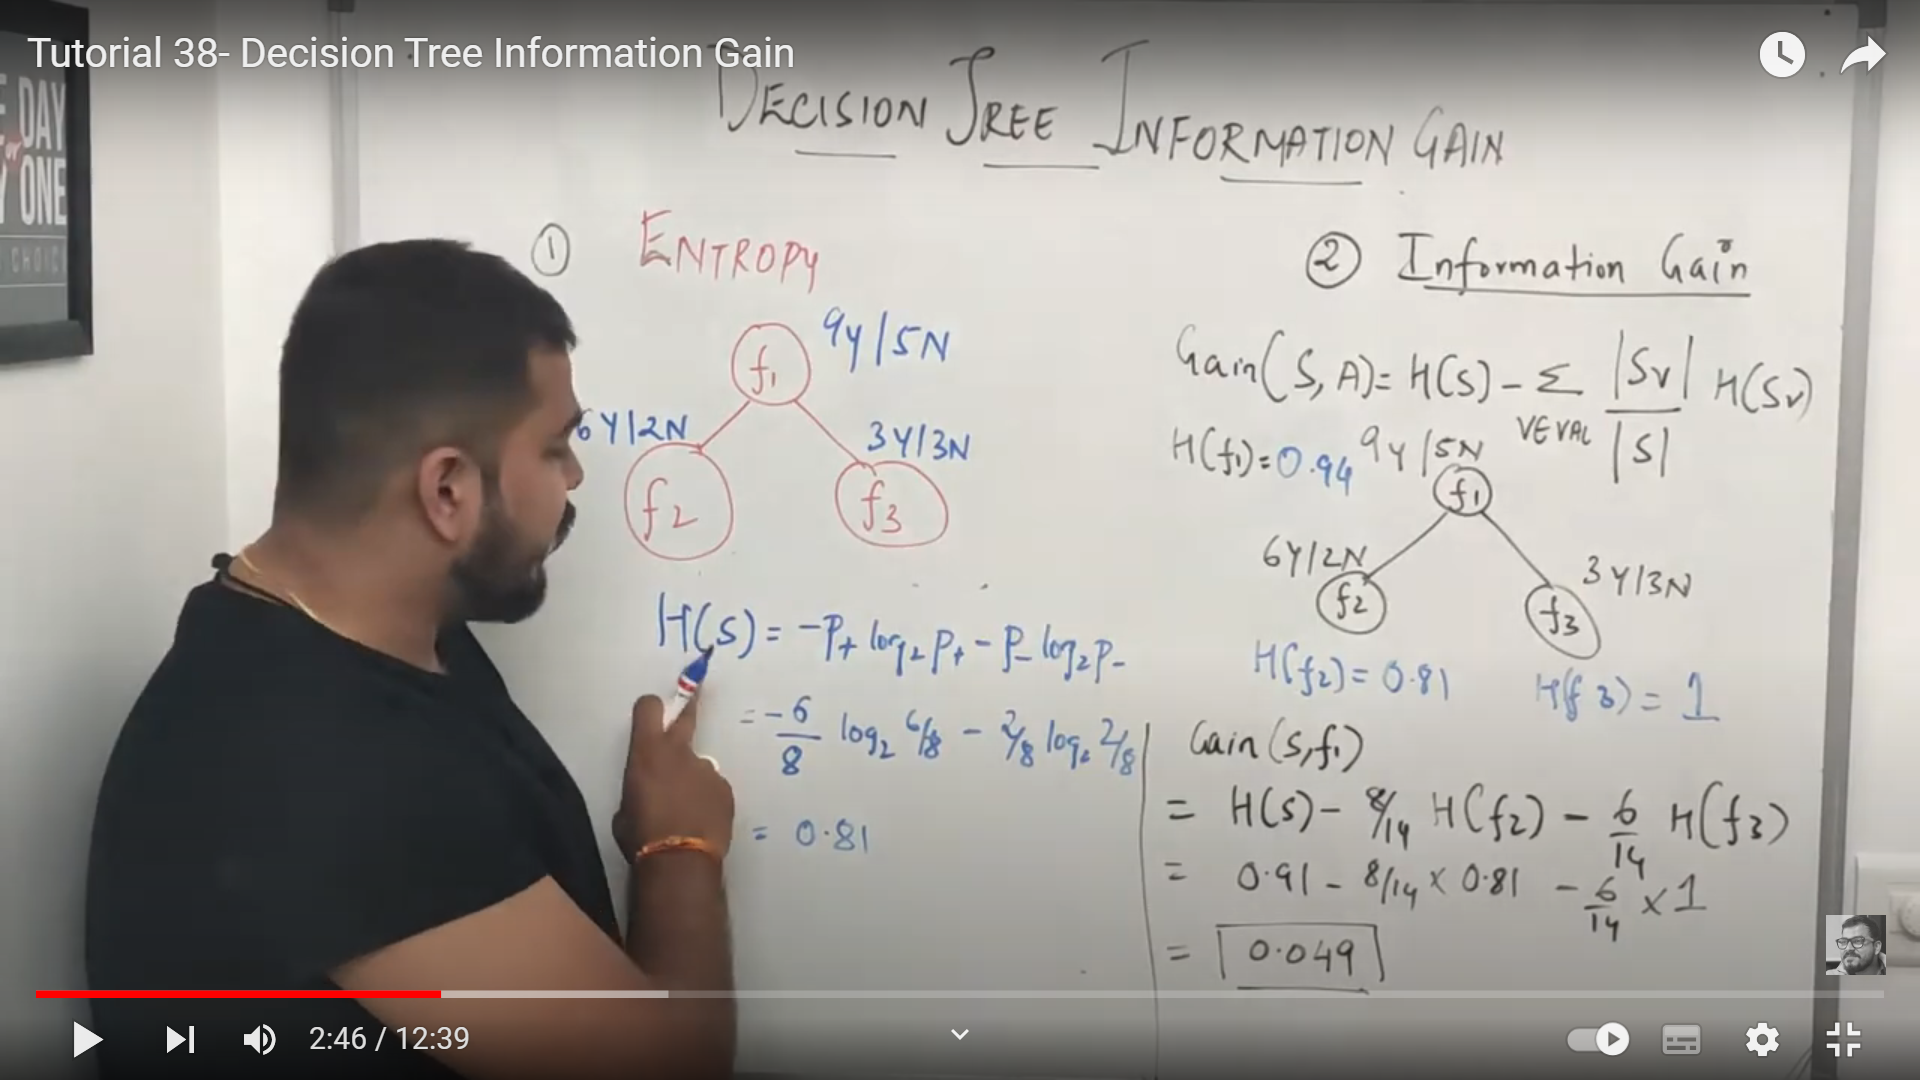 Tutorial 38- Decision Tree Information Gain
DECISION TREE INFORMATION GAIN
DAY
or
ONE
CHOICE
① ENTROPY
9Y/5N
f1
6Y/2N
3Y/3N
f2
f3
H(S) = -P+ log2 P+ - P- log2 P-
= -6/8 log2 6/8 - 2/8 log2 2/8
= 0.81
② Information Gain
Gain(S, A) = H(S) - Σ |Sv|/|S| H(Sv)
VEVAL
H(f1) = 0.94 9Y/5N
f1
6Y/2N
3Y/3N
f2
f3
H(f2) = 0.81
H(f3) = 1
Gain (S, f1)
= H(S) - 8/14 H(f2) - 6/14 H(f3)
= 0.91 - 8/14 x 0.81 - 6/14 x 1
= 0.049
2:46 / 12:39